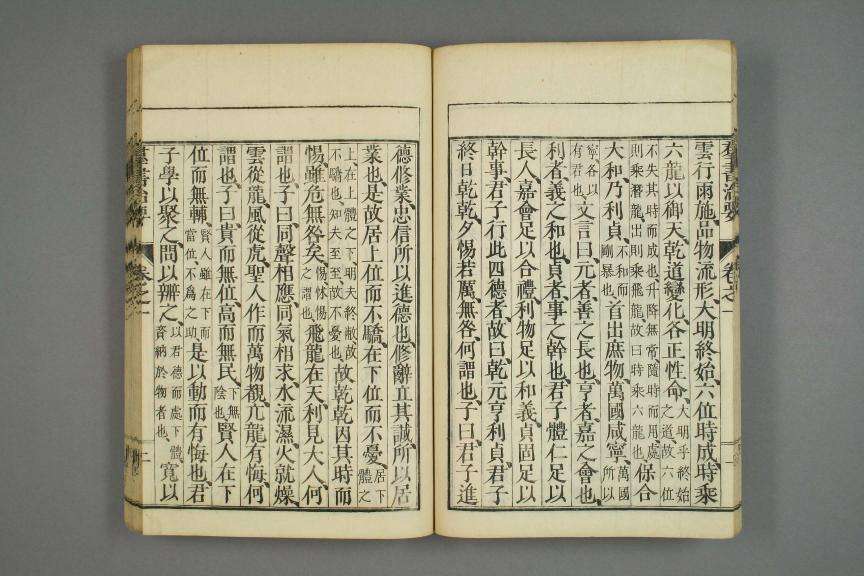 羣書治要 卷之一
雲行雨施、品物流形、大明終始、六位時成、時乘
六龍以御天、乾道變化、各正性命、大明乎終始之道、故六位
不失其時而成也、升降無常、隨時而用、處則乘潛龍、出則乘飛龍、故曰時乘六龍也、保合
大和、乃利貞、不和而剛暴也、首出庶物、萬國咸寧、萬國所以
寧、各以有君也、文言曰、元者、善之長也、亨者、嘉之會也、
利者、義之和也、貞者、事之幹也、君子體仁足以
長人、嘉會足以合禮、利物足以和義、貞固足以
幹事、君子行此四德者、故曰、乾元亨利貞、君子
終日乾乾、夕惕若厲、無咎、何謂也、子曰、君子進
德修業、忠信所以進德也、修辭立其誠、所以居
業也、是故居上位而不驕、在下位而不憂、居下體之
上、在上體之下、明夫終敝、故不驕也、知夫至至、故不憂也、故乾乾因其時而
惕、雖危無咎矣、惕怵惕之謂也、飛龍在天、利見大人、何
謂也、子曰、同聲相應、同氣相求、水流濕、火就燥、
雲從龍、風從虎、聖人作而萬物覩、亢龍有悔、何
謂也、子曰、貴而無位、高而無民、下無陰也、賢人在下
位而無輔、賢人雖在下而當位、不為之助、是以動而有悔也、君
子學以聚之、問以辨之、以君德而處下體、資納於物者也、寬以
羣書治要 卷之一 二